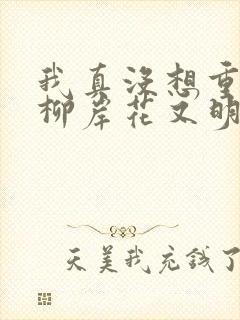 我真没想重
柳岸花又明
天美我充钱了